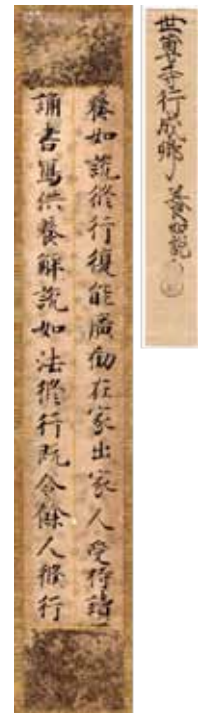 世尊寺行成卿 養如說
養如說修行復能廣勸在家出家人受持讀
誦書寫供養解說如法修行既令餘人修行